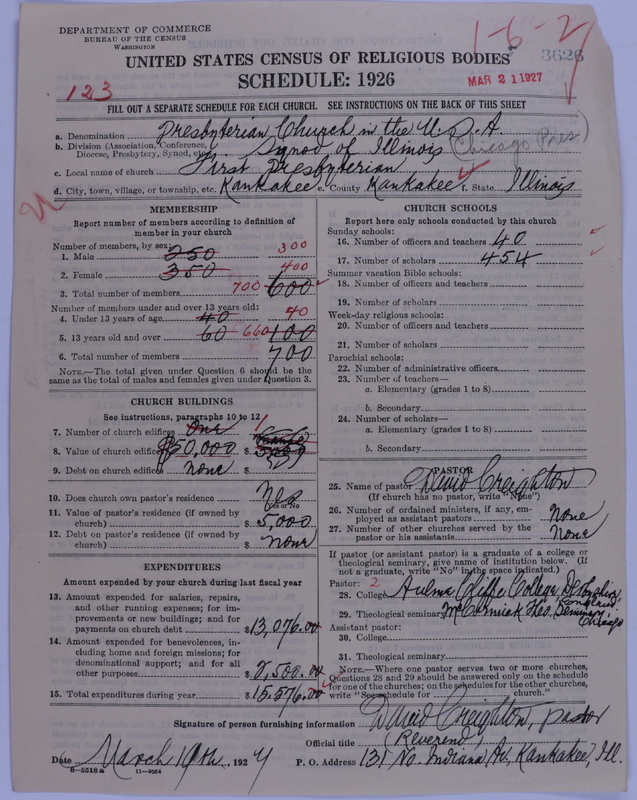 DEPARTMENT OF COMMERCE
BUREAU OF THE CENSUS
WASHINGTON
1-6-2
3626
UNITED STATES CENSUS OF RELIGIOUS BODIES
SCHEDULE: 1926
MAR 21 1927
123
FILL OUT A SEPARATE SCHEDULE FOR EACH CHURCH. SEE INSTRUCTIONS ON THE BACK OF THIS SHEET
a. Denomination Presbyterian Church in the U.S.A.
b. Division (Association, Conference, Diocese, Presbytery, Synod, etc.) Synod of Illinois (Chicago Pres)
c. Local name of church First Presbyterian
d. City, town, village, or township, etc. Kankakee e. County Kankakee f. State Illinois
MEMBERSHIP
Report number of members according to definition of
member in your church
Number of members, by sex:
1. Male 250 300
2. Female 350 400
3. Total number of members 700 600
Number of members under and over 13 years old:
4. Under 13 years of age 40 40
5. 13 years old and over 60 660 100
6. Total number of members 700
NOTE.—The total given under Question 6 should be the
same as the total of males and females given under Question 3.
CHURCH BUILDINGS
See instructions, paragraphs 10 to 12
7. Number of church edifices One 1
8. Value of church edifices $50,000 $
9. Debt on church edifices none $
10. Does church own pastor's residence Yes
Yes or No
11. Value of pastor's residence (if owned by
church) $ 5,000
12. Debt on pastor's residence (if owned by
church) $ none
EXPENDITURES
Amount expended by your church during last fiscal year
13. Amount expended for salaries, repairs,
and other running expenses; for im-
provements or new buildings; and for
payments on church debt $ 13,076.00
14. Amount expended for benevolences, in-
cluding home and foreign missions; for
denominational support; and for all
other purposes $ 2,500.00
15. Total expenditures during year $ 15,576.00
CHURCH SCHOOLS
Report here only schools conducted by this church
Sunday schools:
16. Number of officers and teachers 40
17. Number of scholars 454
Summer vacation Bible schools:
18. Number of officers and teachers
19. Number of scholars
Week-day religious schools:
20. Number of officers and teachers
21. Number of scholars
Parochial schools:
22. Number of administrative officers
23. Number of teachers—
a. Elementary (grades 1 to 8)
b. Secondary
24. Number of scholars—
a. Elementary (grades 1 to 8)
b. Secondary
PASTOR
25. Name of pastor David Creighton
(If church has no pastor, write "None")
26. Number of ordained ministers, if any, em-
ployed as assistant pastors none
27. Number of other churches served by the
pastor or his assistants none
If pastor (or assistant pastor) is a graduate of a college or
theological seminary, give name of institution below. (If
not a graduate, write "No" in the space indicated.)
Pastor: 2
28. College Hulme Cliffe College, Derbyshire, England
29. Theological seminary McCormick Theo. Seminary, Chicago
Assistant pastor:
30. College
31. Theological seminary
NOTE.—Where one pastor serves two or more churches,
Questions 28 and 29 should be answered only on the schedule
for one of the churches; on the schedules for the other churches,
write "See schedule for church."
Signature of person furnishing information David Creighton, pastor
Official title (Reverend)
Date March 19th, 1927 P. O. Address 131 No. Indiana Av, Kankakee, Ill.
8-5518a 11-9064